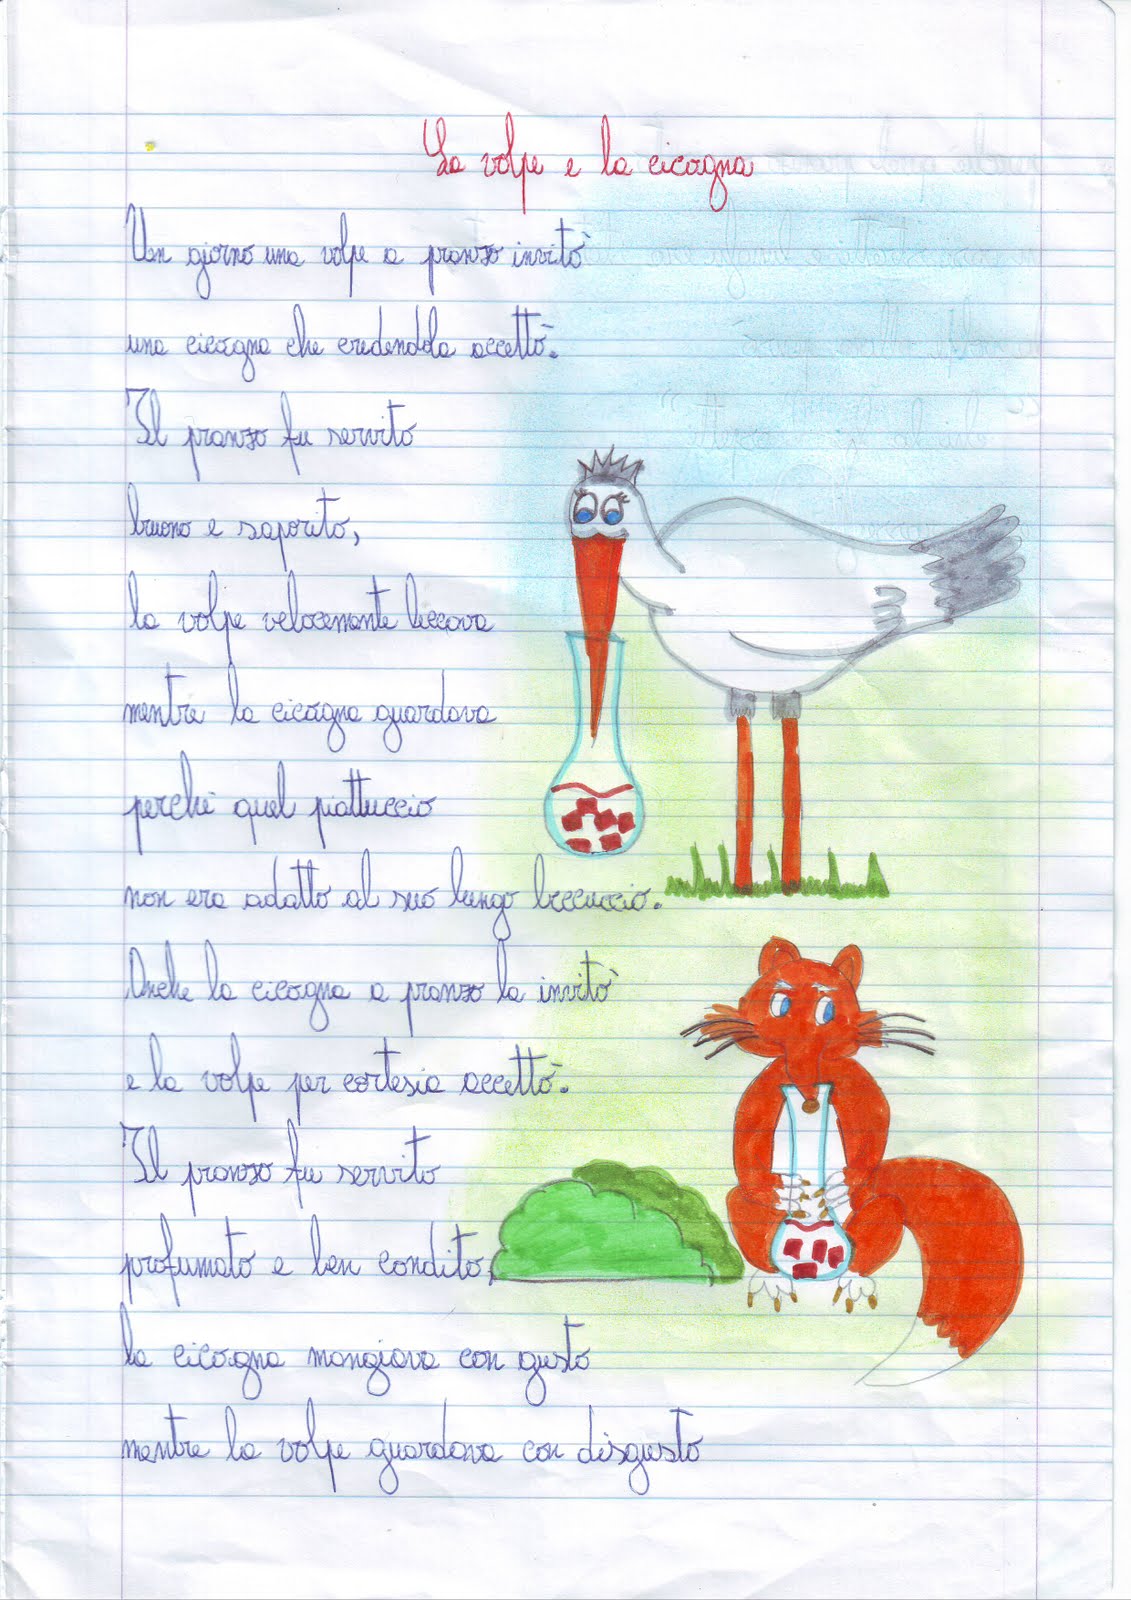 La volpe e la cicogna
Un giorno una volpe a pranzo invitò
una cicogna che credendola accettò.
Il pranzo fu servito
buono e saporito,
la volpe velocemente leccava
mentre la cicogna guardava
perchè quel piattuccio
non era adatto al suo lungo beccuccio.
Anche la cicogna a pranzo la invitò
e la volpe per cortesia accettò.
Il pranzo fu servito
profumato e ben condito,
la cicogna mangiava con gusto
mentre la volpe guardava con disgusto